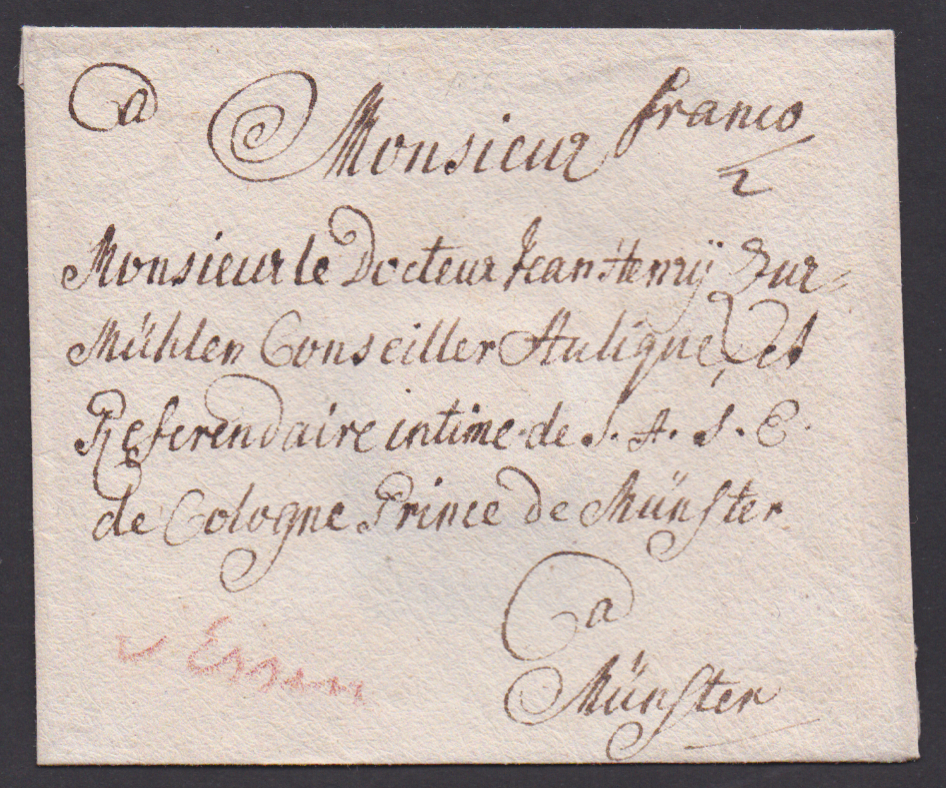 a Monsieur franco
/2
Monsieur le Docteur Jean Henrÿ Zur=
Mühlen Conseiller Aulique, et
Referendaire intime de S. A. S. E.
de Cologne Prince de Münster
a
Münster
v Essen